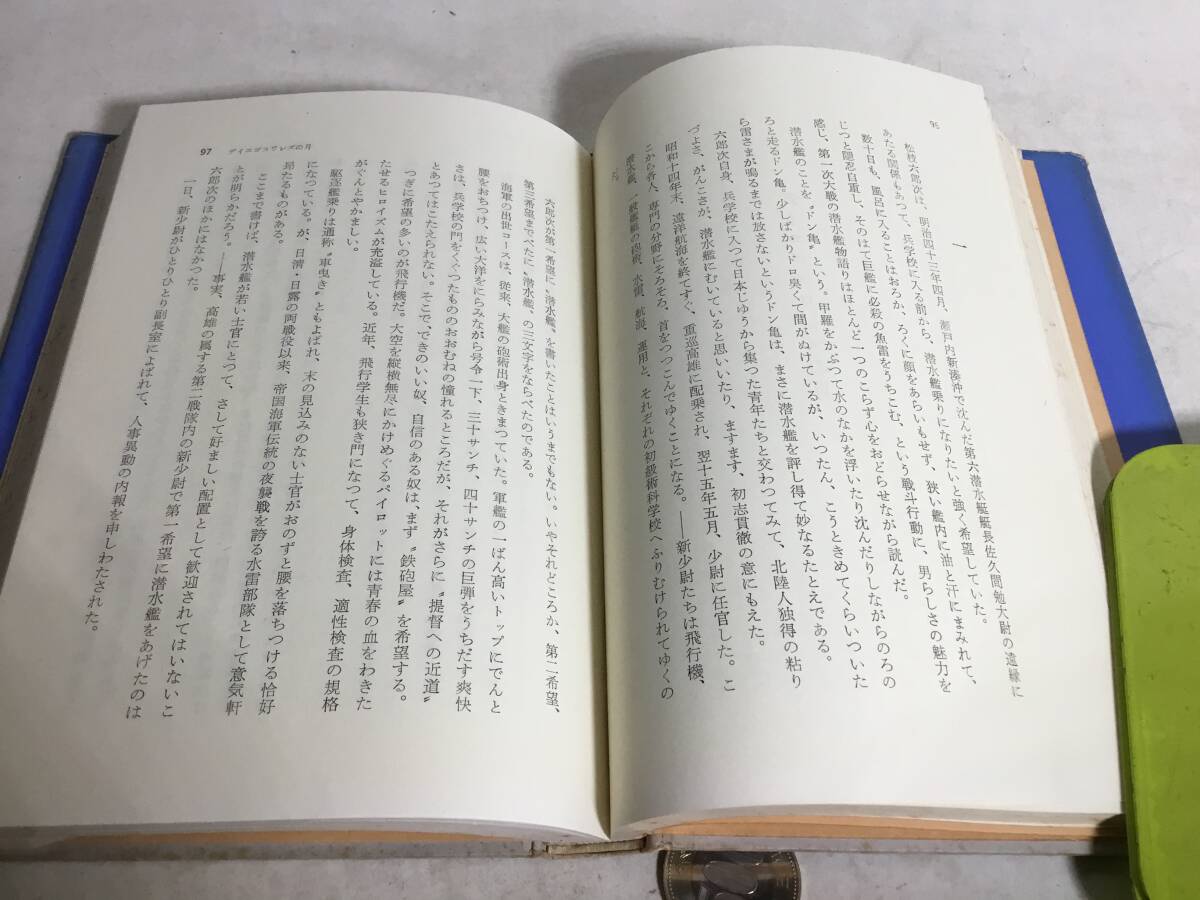 96
一
松枝六郎次は、明治四十三年四月、瀬戸内新湊沖で沈んだ第六潜水艇艇長佐久間勉大尉の遠縁に
あたる関係もあつて、兵学校に入る前から、潜水艦乗りになりたいと強く希望していた。
数十日も、風呂に入ることはおろか、ろくに顔をあらいもせず、狭い艦内に油と汗にまみれて、
じつと隠忍自重し、そのはて巨艦に必殺の魚雷をうちこむ、という戦斗行動に、男らしさの魅力を
感じ、第一次大戦の潜水艦物語りはほとんど一つのこらず心をおどらせながら読んだ。
潜水艦のことを〝ドン亀〟という。甲羅をかぶつて水のなかを浮いたり沈んだりしながらのろの
ろと走るドン亀。少しばかりドロ臭くて間がぬけているが、いつたん、こうときめてくらいついた
ら雷さまが鳴るまでは放さないというドン亀は、まさに潜水艦を評し得て妙なるたとえである。
六郎次自身、兵学校に入つて日本じゆうから集つた青年たちと交わつてみて、北陸人独得の粘り
づよさ、がんこさが、潜水艦にむいていると思いいたり、ますます、初志貫徹の意にもえた。
昭和十四年末、遠洋航海を終てすぐ、重巡高雄に配乗され、翌十五年五月、少尉に任官した。こ
こから各人、専門の分野にそろそろ、首をつつこんでゆくことになる。――新少尉たちは飛行機、
潜水艦、一般艦の砲術、水雷、航海、運用と、それぞれの初級術科学校へふりむけられてゆくの
だ。
六郎次が第一希望に〝潜水艦〟を書いたことはいうまでもない。いやそれどころか、第二希望、
第三希望までべたに〝潜水艦〟の三文字をならべたのである。
海軍の出世コースは、従来、大艦の砲術出身ときまつていた。軍艦の一ばん高いトップにでんと
腰をおちつけ、広い大洋をにらみながら号令一下、三十サンチ、四十サンチの巨弾をうちだす爽快
さは、兵学校の門をくぐつたもののおおむねの憧れるところだが、それがさらに〝提督への近道〟
とあつてはこたえられない。そこで、できのいい奴、自信のある奴は、まず〝鉄砲屋〟を希望する。
つぎに希望の多いのが飛行機だ。大空を縦横無尽にかけめぐるパイロットには青春の血をわきた
たせるヒロイズムが充溢している。近年、飛行学生も狭き門になつて、身体検査、適性検査の規格
がぐんとやかましい。
駆逐艦乗りは通称〝車曳き〟ともよばれ、末の見込みのない士官がおのずと腰を落ちつける恰好
になつている。が、日清・日露の両戦役以来、帝国海軍伝統の夜襲戦を誇る水雷部隊として意気軒
昂たるものがある。
ここまで書けば、潜水艦が若い士官にとつて、さして好ましい配置として歓迎されてはいないこ
とが明らかだろう。――事実、高雄の属する第二戦隊内の新少尉で第一希望に潜水艦をあげたのは
六郎次のほかにはなかつた。
一日、新少尉がひとりひとり副長室によばれて、人事異動の内報を申しわたされた。
97 ディエゴスワレズの月